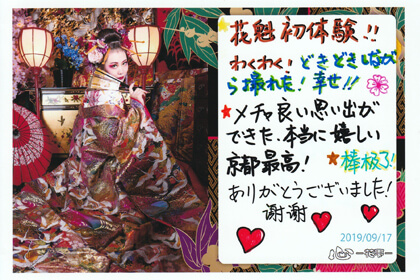 花魁初体験!!
わくわく!どきどきしなが
ら撮れた!幸せ!!
メチャ良い思い出が
できた、本当に嬉しい
京都最高!棒极了!
ありがとうございました!
谢谢
2019/09/17
心-花雫-